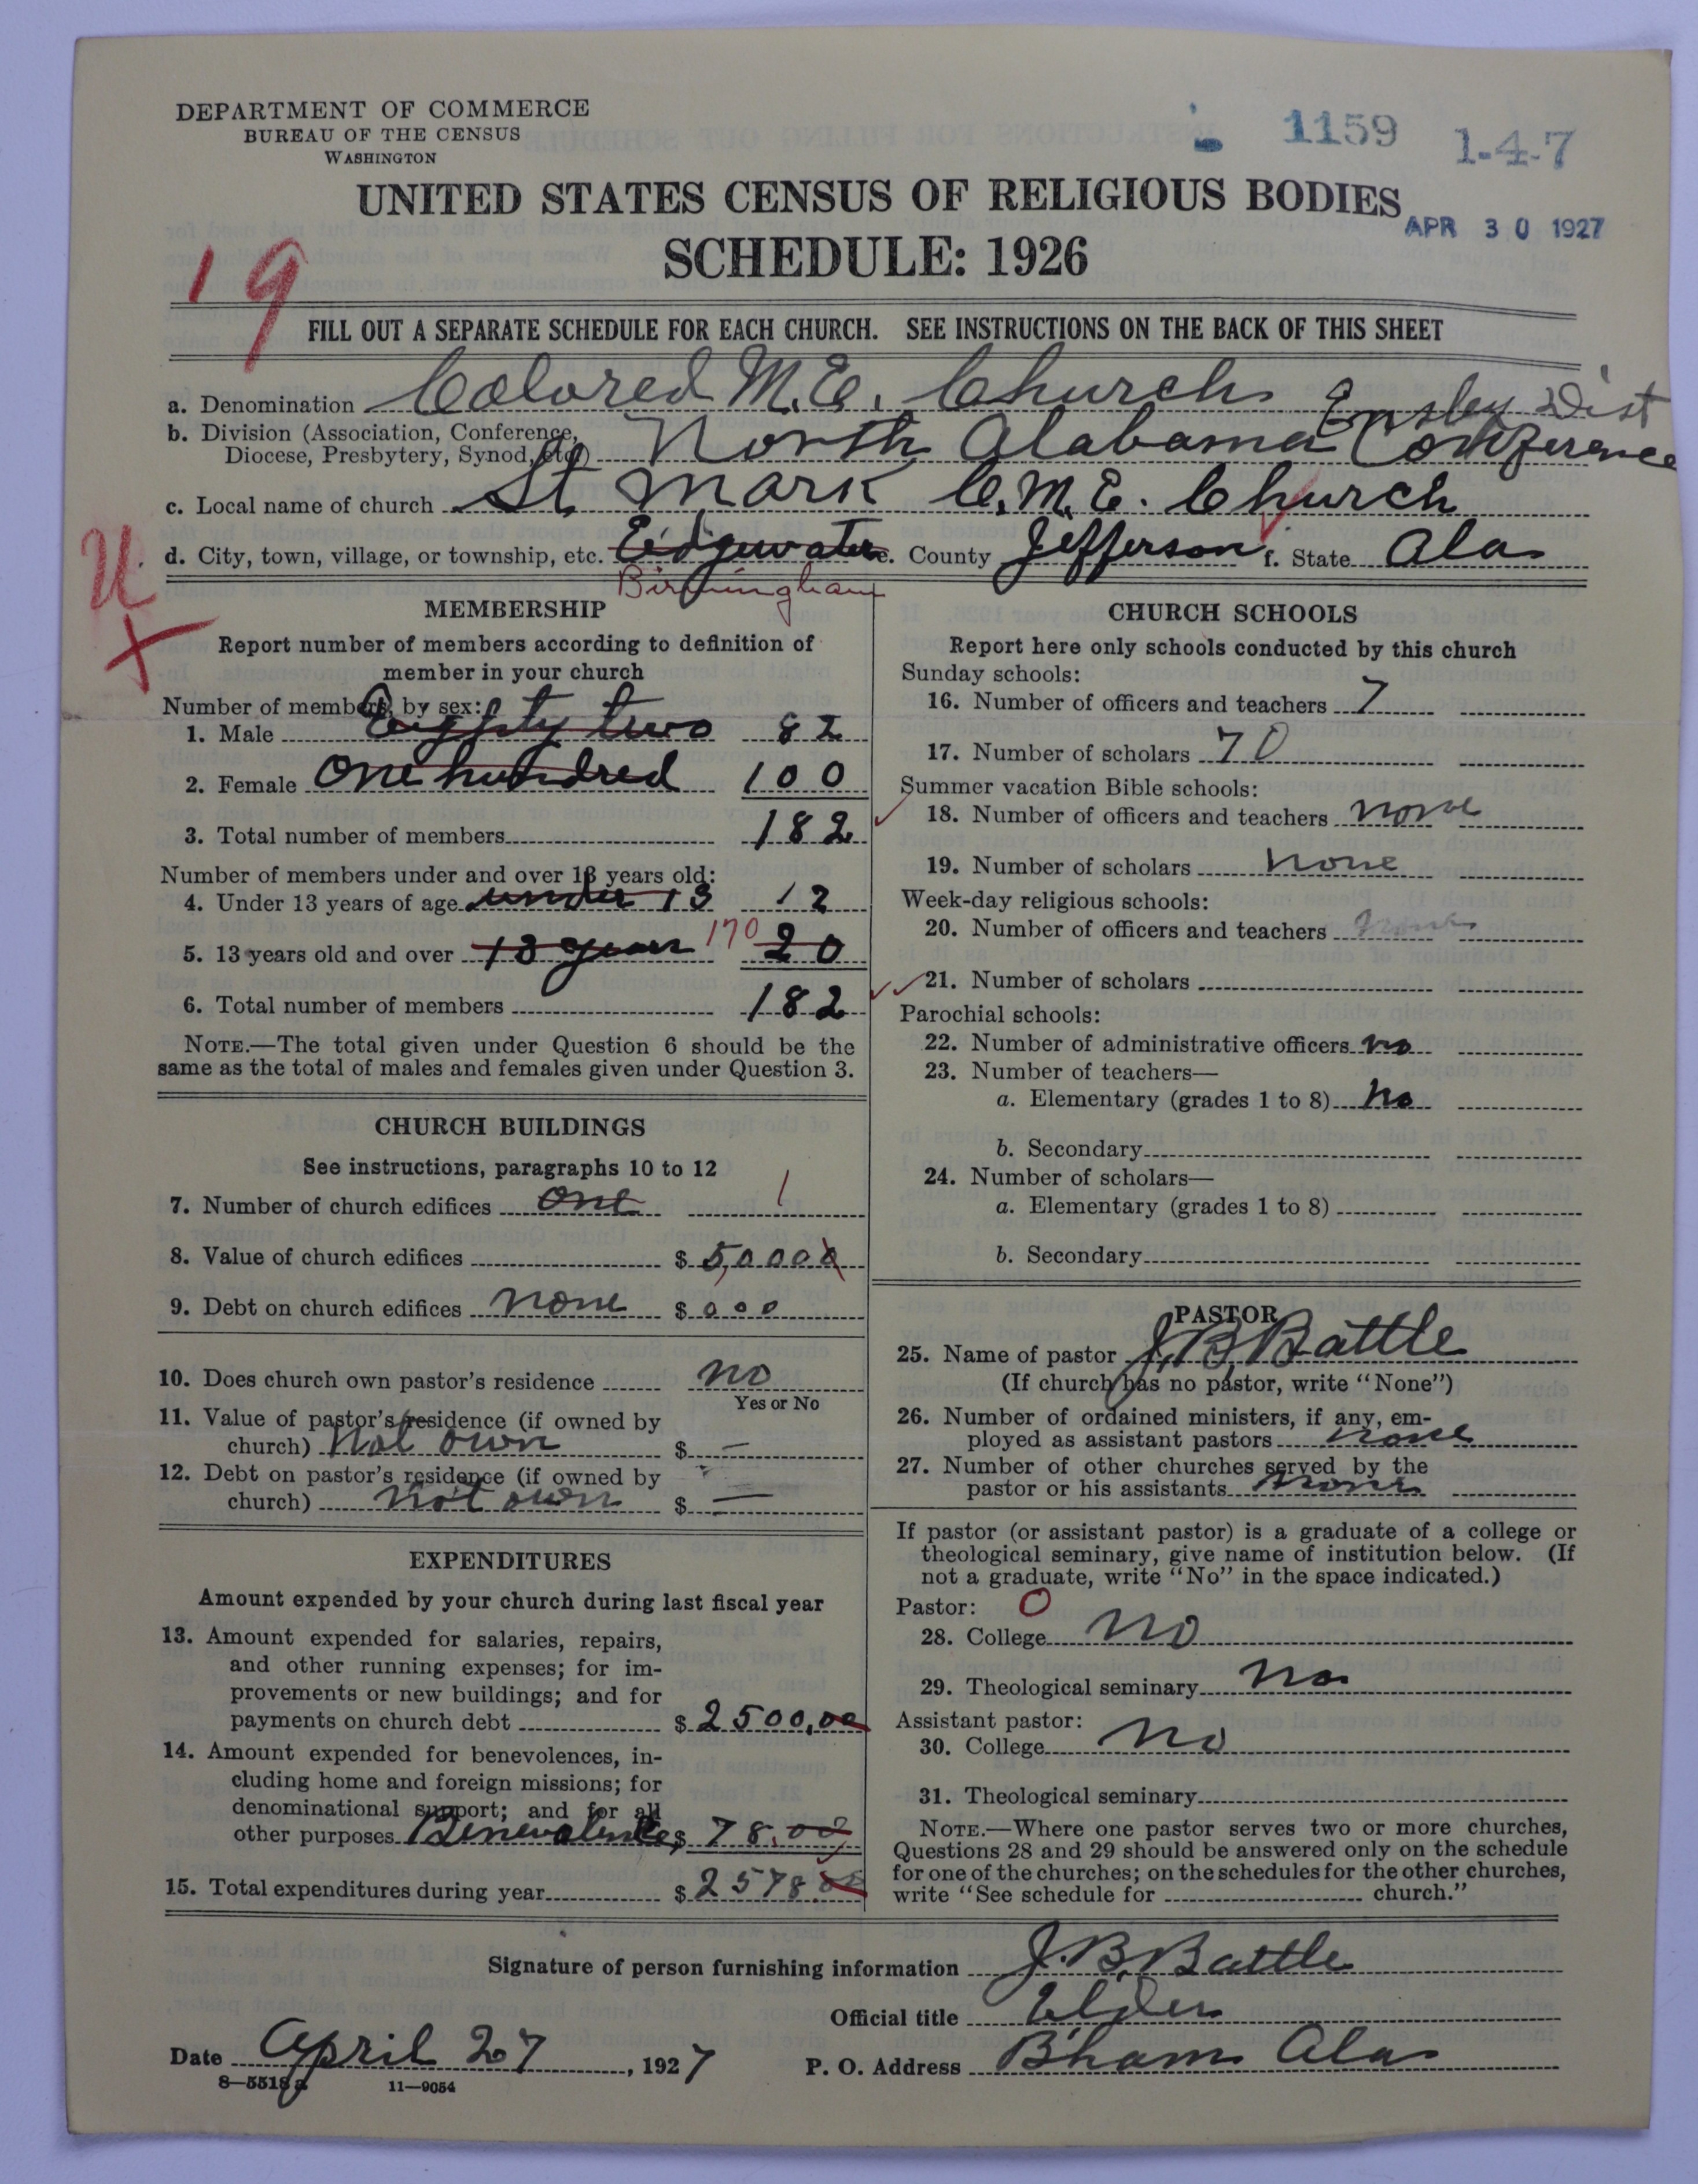 DEPARTMENT OF COMMERCE
BUREAU OF THE CENSUS
WASHINGTON
1159 1-4-7
UNITED STATES CENSUS OF RELIGIOUS BODIES
APR 30 1927
SCHEDULE: 1926
19
FILL OUT A SEPARATE SCHEDULE FOR EACH CHURCH. SEE INSTRUCTIONS ON THE BACK OF THIS SHEET
a. Denomination Colored M.E. Church Ensley Dist
b. Division (Association, Conference, Diocese, Presbytery, Synod, etc.) North Alabama Conference
c. Local name of church St Mark C.M.E. Church
d. City, town, village, or township, etc. Edgewater e. County Jefferson f. State Ala
Birmingham
MEMBERSHIP
Report number of members according to definition of
member in your church
Number of members by sex:
1. Male Eighty two 82
2. Female One hundred 100
3. Total number of members 182
Number of members under and over 13 years old:
4. Under 13 years of age under 13 12
5. 13 years old and over 13 years 170 20
6. Total number of members 182
NOTE.—The total given under Question 6 should be the
same as the total of males and females given under Question 3.
CHURCH BUILDINGS
See instructions, paragraphs 10 to 12
7. Number of church edifices one 1
8. Value of church edifices $ 5,0000
9. Debt on church edifices none $ 000
10. Does church own pastor's residence no
Yes or No
11. Value of pastor's residence (if owned by
church) not own $ —
12. Debt on pastor's residence (if owned by
church) not own $ —
EXPENDITURES
Amount expended by your church during last fiscal year
13. Amount expended for salaries, repairs,
and other running expenses; for im-
provements or new buildings; and for
payments on church debt $ 2500.00
14. Amount expended for benevolences, in-
cluding home and foreign missions; for
denominational support; and for all
other purposes Benevolence $ 78.00
15. Total expenditures during year $ 2578.00
CHURCH SCHOOLS
Report here only schools conducted by this church
Sunday schools:
16. Number of officers and teachers 7
17. Number of scholars 70
Summer vacation Bible schools:
18. Number of officers and teachers none
19. Number of scholars none
Week-day religious schools:
20. Number of officers and teachers none
21. Number of scholars
Parochial schools:
22. Number of administrative officers no
23. Number of teachers—
a. Elementary (grades 1 to 8) no
b. Secondary
24. Number of scholars—
a. Elementary (grades 1 to 8)
b. Secondary
PASTOR
25. Name of pastor J.B. Battle
(If church has no pastor, write "None")
26. Number of ordained ministers, if any, em-
ployed as assistant pastors none
27. Number of other churches served by the
pastor or his assistants none
If pastor (or assistant pastor) is a graduate of a college or
theological seminary, give name of institution below. (If
not a graduate, write "No" in the space indicated.)
Pastor: 0
28. College no
29. Theological seminary no
Assistant pastor:
30. College no
31. Theological seminary
NOTE.—Where one pastor serves two or more churches,
Questions 28 and 29 should be answered only on the schedule
for one of the churches; on the schedules for the other churches,
write "See schedule for church."
Signature of person furnishing information J.B. Battle
Official title Elder
Date April 27, 1927 P. O. Address B'ham Ala
8—5518a 11—9054